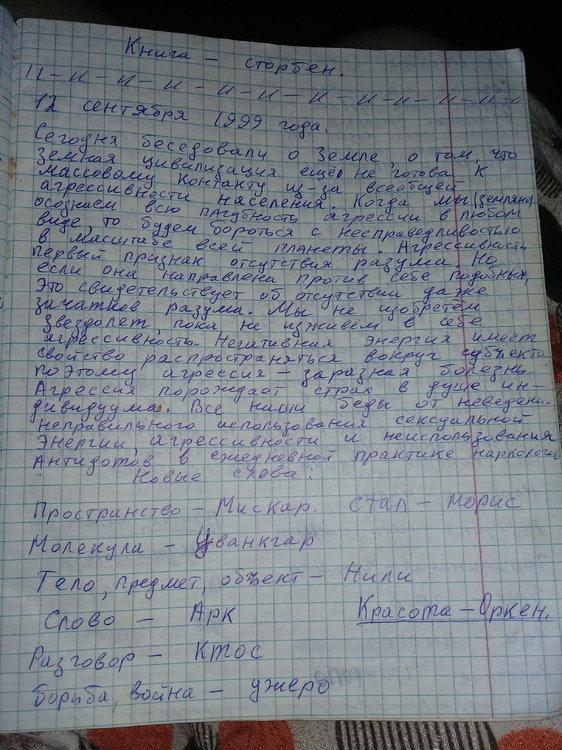 Книга – сторбен.
12 сентября 1999 года.
Сегодня беседовали о Земле, о том, что
Земная цивилизация ещё не готова к
массовому контакту из-за всеобщей
агрессивности населения. Когда мы (земляне)
осознаем всю пагубность агрессии в любом
виде, то будем бороться с несправедливостью
в масштабе всей планеты. Агрессивность
первый признак отсутствия разума. Но
если она направлена против себе подобных,
это свидетельствует об отсутствии даже
зачатков разума. Мы не изобретём
звездолёт, пока не изживём в себе
агрессивность. Негативная энергия имеет
свойство распространяться вокруг субъекта
поэтому агрессия – заразная болезнь.
Агрессия порождает страх в душе ин-
дивидуума. Все наши беды от неведени
неправильного использования сексуальной
энергии, агрессивности и неиспользования
Антидотов в ежедневной практике
Новые слова:
Пространство – Мискар. Стал – Морис
Молекула – Цванкгар
Тело, предмет, объект – Нили
Слово – Арк Красота – Оркен.
Разговор – Ктос
борьба, война – ужеро